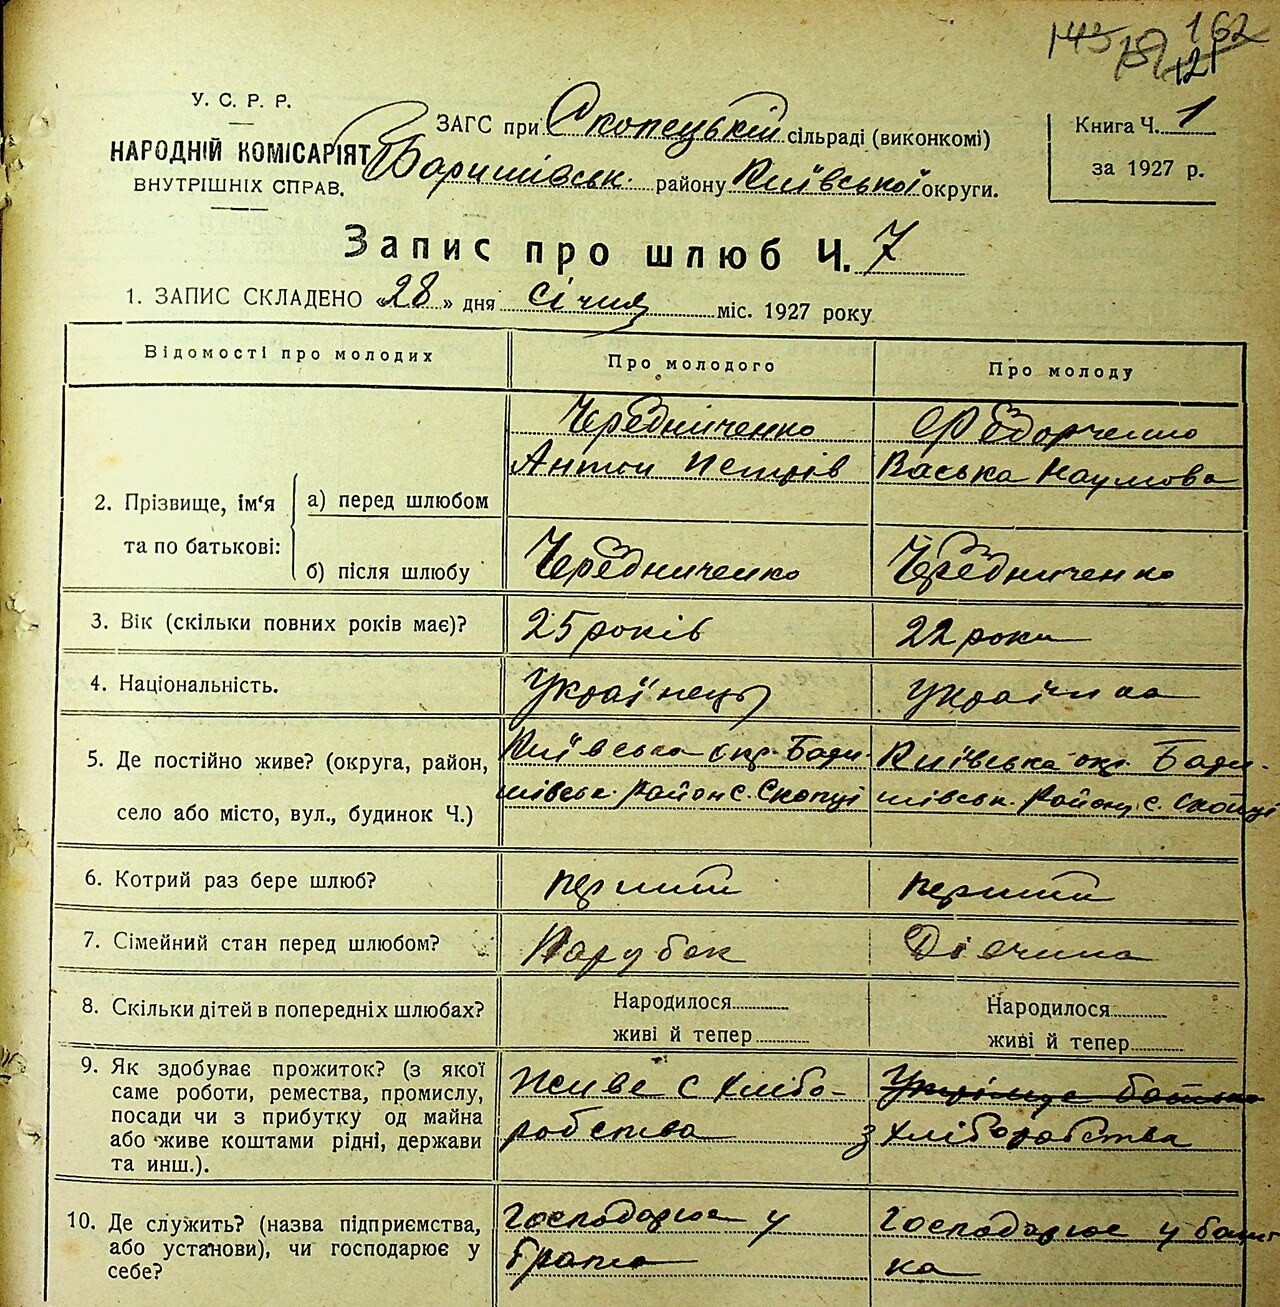 143 162
121
У. С. Р. Р.
НАРОДНІЙ КОМІСАРІЯТ
ВНУТРІШНІХ СПРАВ.
ЗАГС при Скопецькій сільраді (виконкомі)
Баришівськ. району Київської округи.
Книга Ч. 1
за 1927 р.
Запис про шлюб Ч. 7
1. ЗАПИС СКЛАДЕНО «28» дня січня міс. 1927 року
Відомості про молодих
Про молодого
Про молоду
2. Прізвище, ім‘я
та по батькові:
а) перед шлюбом
Чередниченко
Антон Петрів
Федорченко
Васька Наумова
б) після шлюбу
Чередниченко
Чередниченко
3. Вік (скільки повних років має)?
25 років
22 роки
4. Національність.
Українець
Українка
5. Де постійно живе? (округа, район,
село або місто, вул., будинок Ч.)
Київська окр. Бари-
шівськ. район с. Скопці
Київська окр. Бари-
шівськ. району с. Скопці
6. Котрий раз бере шлюб?
перший
перший
7. Сімейний стан перед шлюбом?
Парубок
Дівчина
8. Скільки дітей в попередніх шлюбах?
Народилося
живі й тепер
Народилося
живі й тепер
9. Як здобуває прожиток? (з якої
саме роботи, ремества, промислу,
посади чи з прибутку од майна
або живе коштами рідні, держави
та инш.).
Живе с хлібо-
робства
батька
з хліборобства
10. Де служить? (назва підприємства,
або установи), чи господарює у
себе?
Господарює у
брата
Господарює у бать
ка